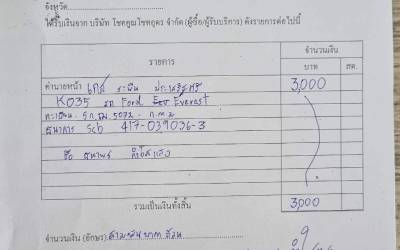 จังหวัด
ได้รับเงินจาก บริษัท โชคคูณโชคถูคร จำกัด (ผู้ซื้อ/ผู้รับบริการ) ดังรายการต่อไปนี้
รายการ จำนวนเงิน
บาท สต.
ค่านายหน้า เคส 3,000
K035 รถ Ford Everest
ทะเบียน 5072 กทม
ธนาคาร Scb 417-039036-3
ชื่อ
รวมเป็นเงินทั้งสิ้น 3,000
จำนวนเงิน (อักษร) สามพันบาทถ้วน